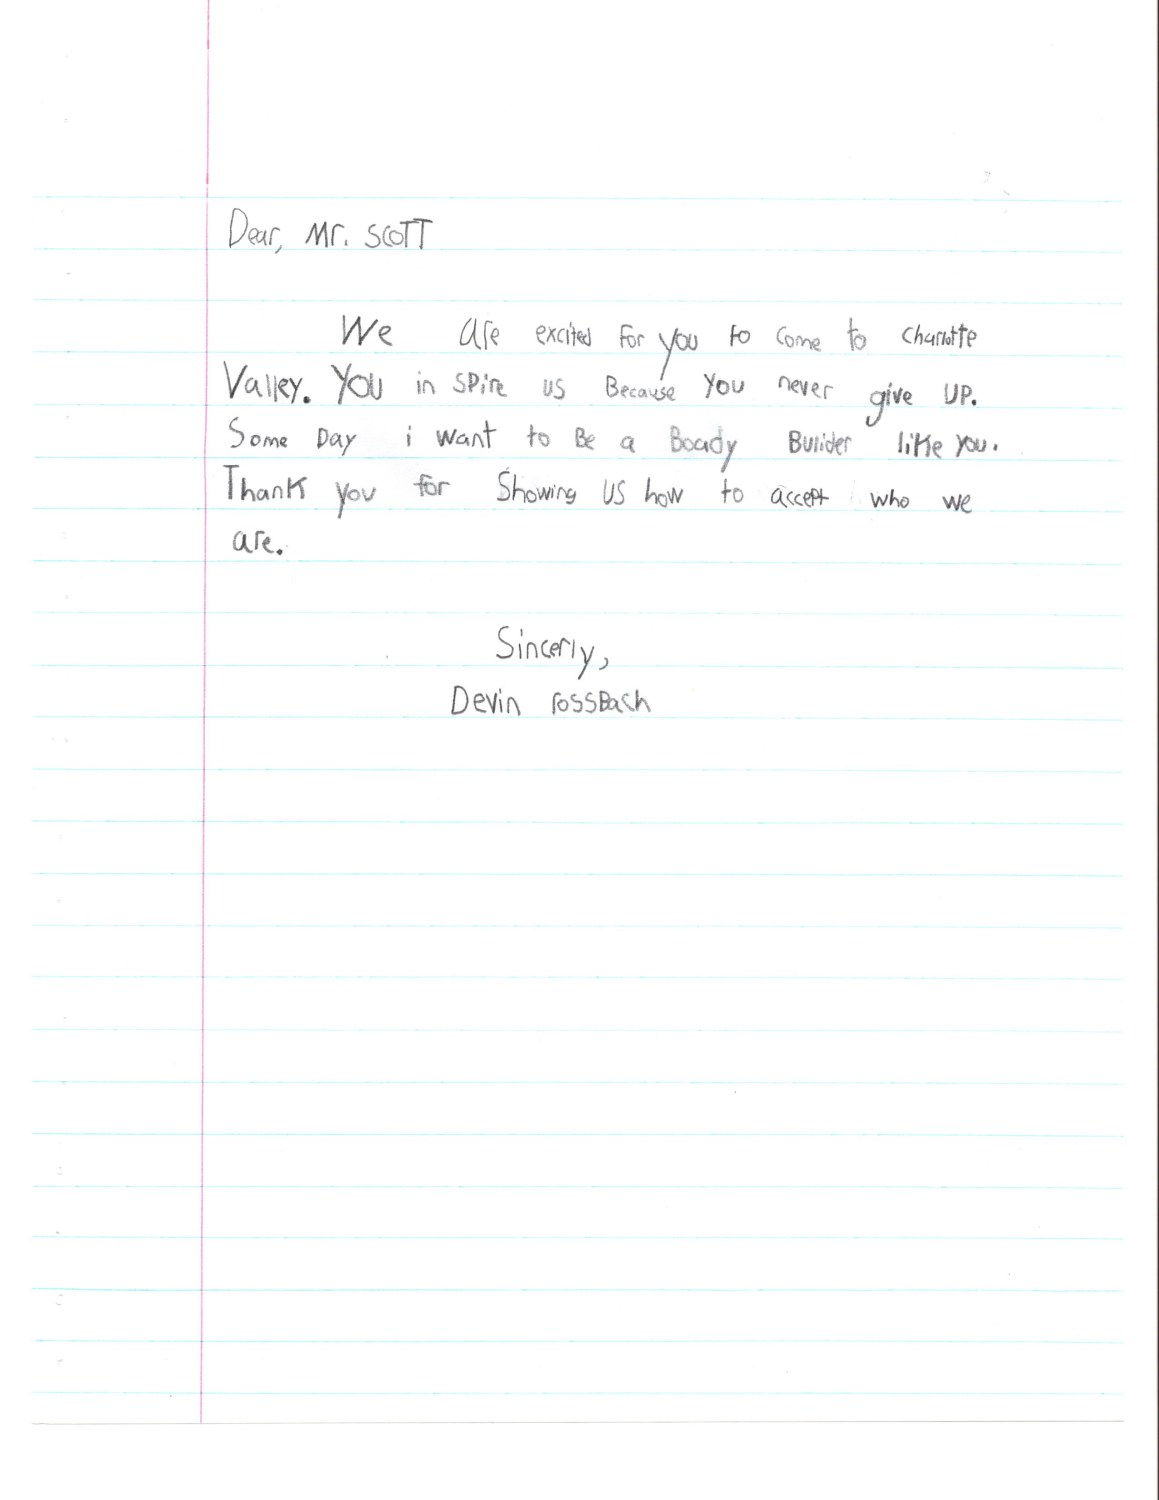 Dear, Mr. SCOTT
We are excited For you to come to charlotte
Valley. YOU in SPire us Because you never give UP.
Some Day i want to Be a Boady Builder like you.
Thank you for Showing US how to accept who we
are.
Sincerly,
Devin rossBach